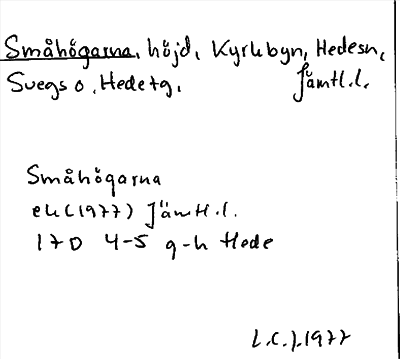 Småhögarna, höjd, Kyrkbyn, Hedesn,
Svegs o, Hede tg, Jämtl.l.
Småhögarna
ek (1977) Jämtl.l.
17D 4-5 g-h Hede
L.C.J. 1977